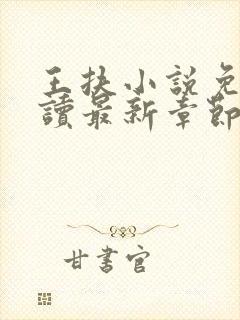 王扶小說免
讀最新章節
甘書官